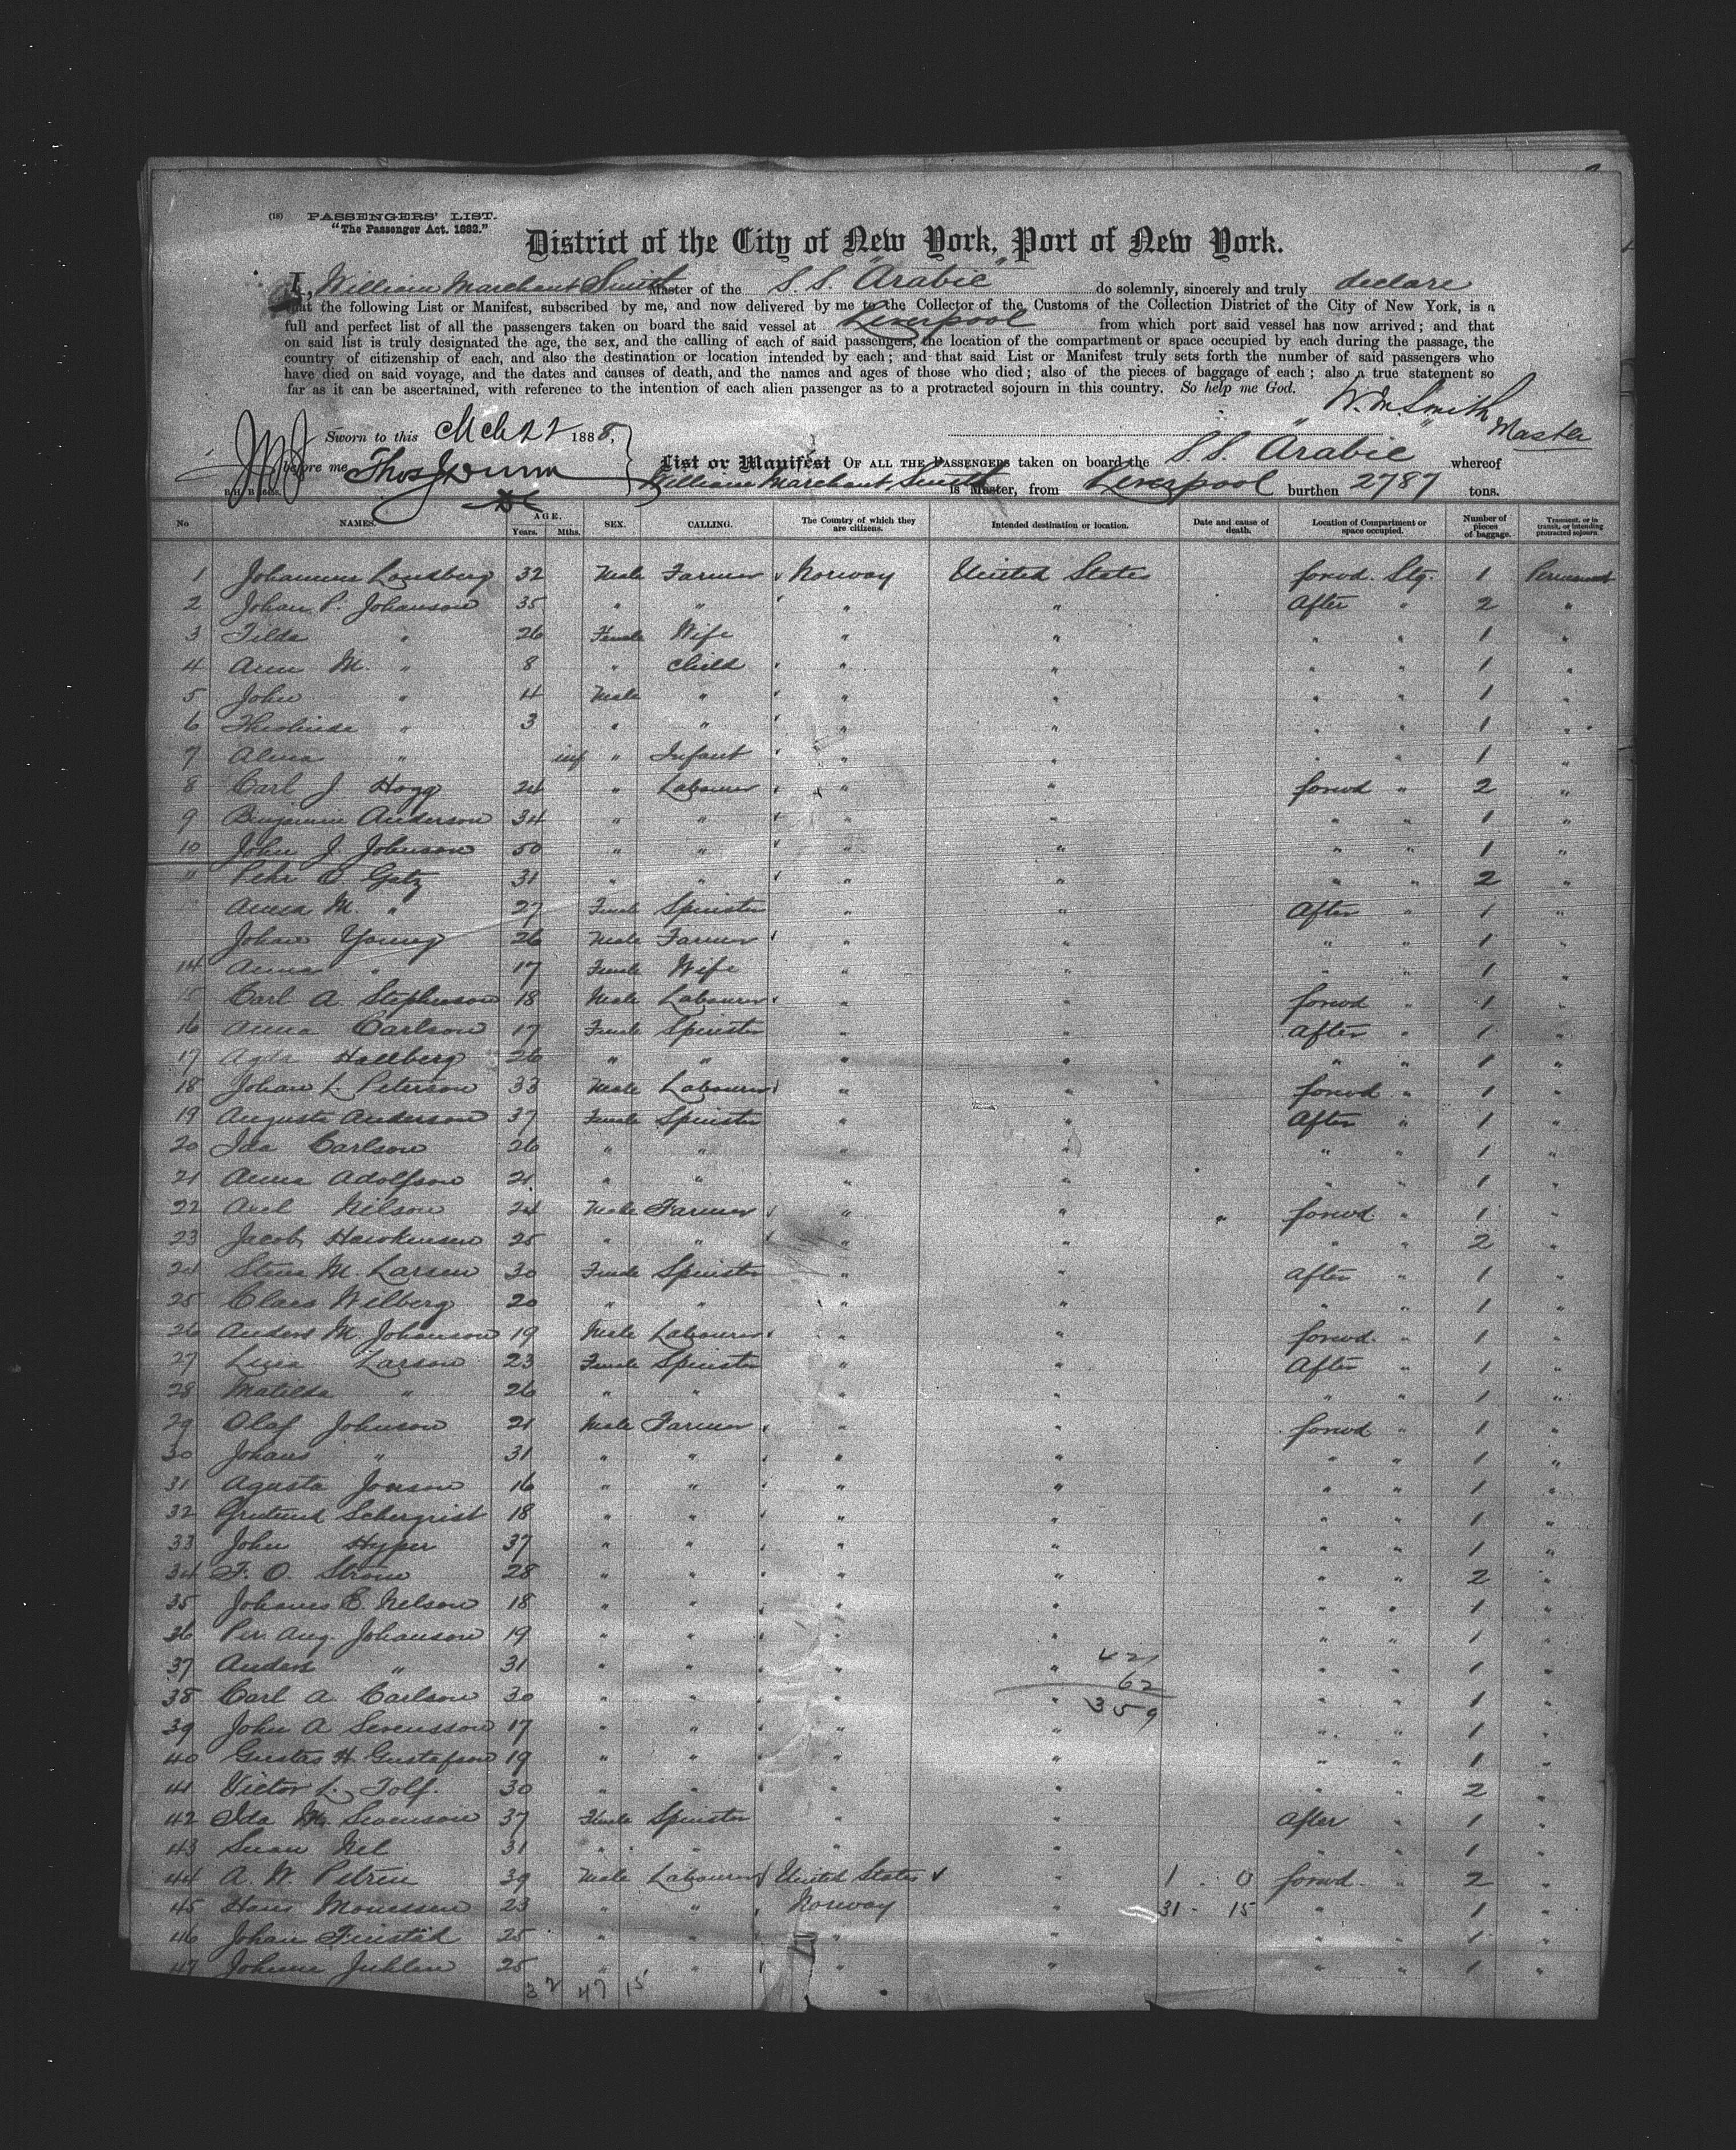 (18) PASSENGERS' LIST.
"The Passenger Act. 1882."
District of the City of New York, Port of New York.
I, William Marchant Smith Master of the S.S. "Arabic" do solemnly, sincerely and truly declare
that the following List or Manifest, subscribed by me, and now delivered by me to the Collector of the Customs of the Collection District of the City of New York, is a
full and perfect list of all the passengers taken on board the said vessel at Liverpool from which port said vessel has now arrived; and that
on said list is truly designated the age, the sex, and the calling of each of said passengers, the location of the compartment or space occupied by each during the passage, the
country of citizenship of each, and also the destination or location intended by each; and that said List or Manifest truly sets forth the number of said passengers who
have died on said voyage, and the dates and causes of death, and the names and ages of those who died; also of the pieces of baggage of each; also a true statement so
far as it can be ascertained, with reference to the intention of each alien passenger as to a protracted sojourn in this country. So help me God.
W. M. Smith Master
Sworn to this Mch 22 1888,
before me Thos J Dunn
List or Manifest OF ALL THE PASSENGERS taken on board the S.S. "Arabic" whereof
William Marchant Smith is Master, from Liverpool burthen 2787 tons.
No NAMES. AGE. Years. Mths. SEX. CALLING. The Country of which they are citizens. Intended destination or location. Date and cause of death. Location of Compartment or space occupied. Number of pieces of baggage. Transient, or in transit, or intending protracted sojourn
1 Landberg 32 Male Farmer Norway United States forwd. Stg. 1 Permanent
2 Johan P. Johanson 35 " " " " After " 2 "
3 Tilda " 26 Female Wife " " " " 1 "
4 Ann M. " 8 " Child " " " " 1 "
5 John " 4 Male " " " " " 1 "
6 " 3 " " " " " " 1 "
7 Alma " inf " Infant " " " " 1 "
8 Carl J. Hogg 24 " Labourer " " forwd " 2 "
9 Benjamin Anderson 34 " " " " " " 1 "
10 John J. Johnson 50 " " " " " " 1 "
11 Pehr Gatz 31 " " " " " " 2 "
Anna M. " 27 Female Spinster " " After " 1 "
Johan Young 26 Male Farmer " " " " 1 "
14 Anna " 17 Female Wife " " " " 1 "
15 Carl A Stephenson 18 Male Labourer " " forwd " 1 "
16 Anna Carlson 17 Female Spinster " " After " 1 "
17 Agda Hallberg 26 " " " " " " 1 "
18 Johan L. Peterson 33 Male Labourer " " forwd " 1 "
19 Augusta Anderson 37 Female Spinster " " After " 1 "
20 Ida Carlson 26 " " " " " " 1 "
21 Anna Adolfson 21 " " " " " " 1 "
22 Axel Nilson 24 Male Farmer " " forwd " 1 "
23 Jacob 25 " " " " " " 2 "
24 Stina M. Larsen 30 Female Spinster " " After " 1 "
25 Claes Wilberg 20 " " " " " " 1 "
26 Anders M. Johanson 19 Male Labourer " " forwd. " 1 "
27 Larson 23 Female Spinster " " After " 1 "
28 Matilda " 26 " " " " " " 1 "
29 Olaf Johnson 21 Male Farmer " " forwd " 1 "
30 Johans " 31 " " " " " " 1 "
31 Agusta Jonson 16 " " " " " " 1 "
32 18 " " " " " " 1 "
33 John Hyper 37 " " " " " " 1 "
34 F. O. Strom 28 " " " " " " 2 "
35 Johanes E. Nelson 18 " " " " " " 1 "
36 Per. Aug. Johanson 19 " " " " " " 1 "
37 Anders " 31 " " " " 421 " " 1 "
62
38 Carl A. Carlson 30 " " " " 359 " " 1 "
39 John A Sevensson 17 " " " " " " 1 "
40 Gustas H Gustafson 19 " " " " " " 1 "
41 Victor L. Tolf. 30 " " " " " " 2 "
42 Ida M. Sevenson 37 Female Spinster " " After " 1 "
43 Swan Nel 31 " " " " " " 1 "
44 A. W. Petrin 39 Male Labourer United States " 1 . 0 forwd. " 2 "
45 Hans Monessen 23 " " Norway " 31 - 15 " " 1 "
46 Johan 25 " " " " " " 1 "
47 Juhlen 25 " " " " " " 1 "
32 47 15